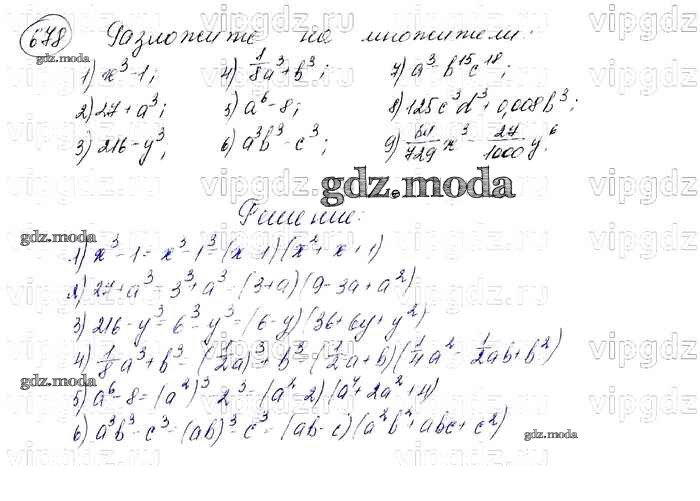 678 Разложите на множители:
1) x³-1; 4) 1/8a³+b³; 7) a³-b¹⁵c¹⁸;
2) 27+a³; 5) a⁶-8; 8) 125c³d³+0,008b³;
3) 216-y³; 6) a³b³-c³; 9) 64/729x³-27/1000y⁶
gdz.moda
Решение:
1) x³-1=x³-1³(x-1)(x²+x+1)
2) 27+a³=3³+a³=(3+a)(9-3a+a²)
3) 216-y³=6³-y³=(6-y)(36+6y+y²)
4) 1/8a³+b³=(1/2a)³+b³=(1/2a+b)(1/4a²-1/2ab+b²)
5) a⁶-8=(a²)³-2³=(a²-2)(a⁴+2a²+4)
6) a³b³-c³=(ab)³-c³=(ab-c)(a²b²+abc+c²)
vipgdz.ru
gdz.moda